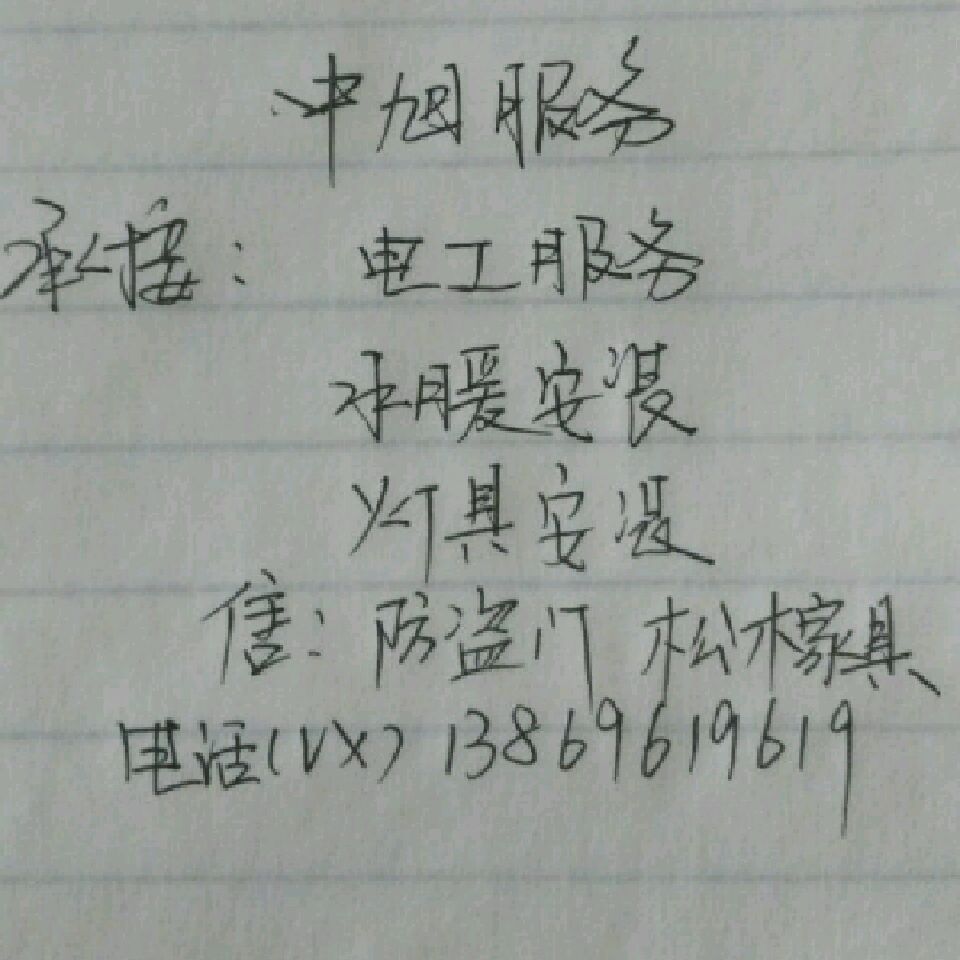 中旭服务
承接：电工服务
水暖安装
灯具安装
售：防盗门 松木家具
电话(VX) 13869619619